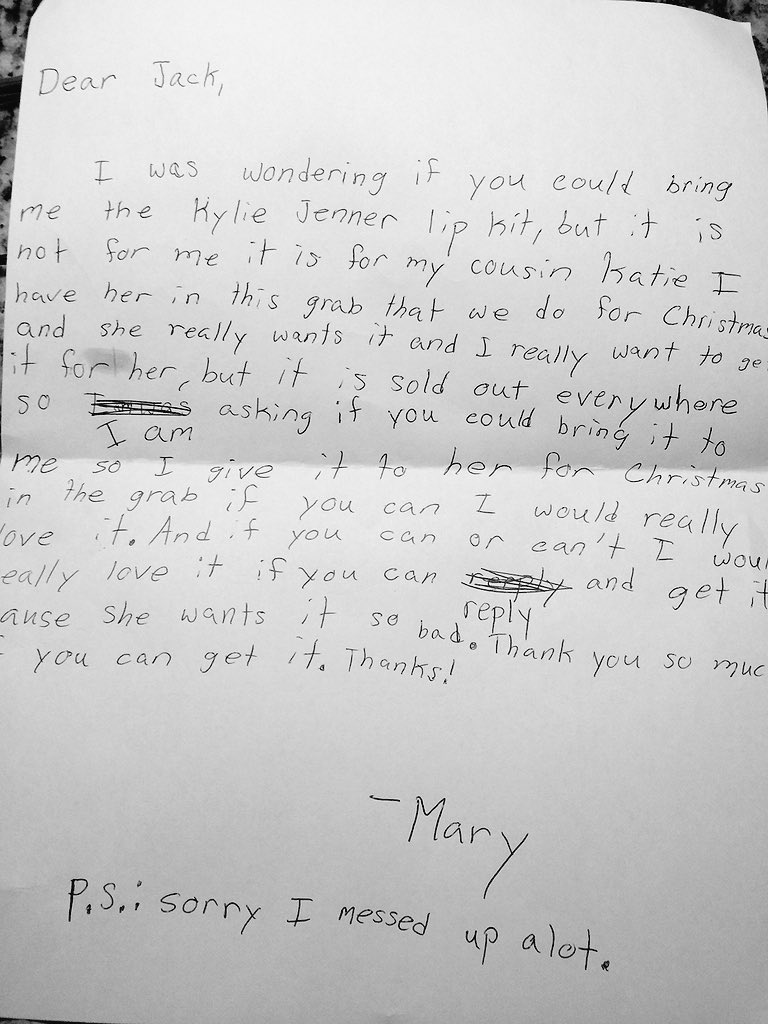 Dear Jack,
I was wondering if you could bring
me the Kylie Jenner lip kit, but it is
not for me it is for my cousin Katie I
have her in this grab that we do for Christmas
and she really wants it and I really want to ge
it for her, but it is sold out everywhere
so asking if you could bring it to
I am
me so I give it to her for Christmas
in the grab if you can I would really
love it. And if you can or can't I woul
eally love it if you can and get it
reply
ause she wants it so bad. Thank you so muc
f you can get it. Thanks!
-Mary
P.S.: sorry I messed up alot.